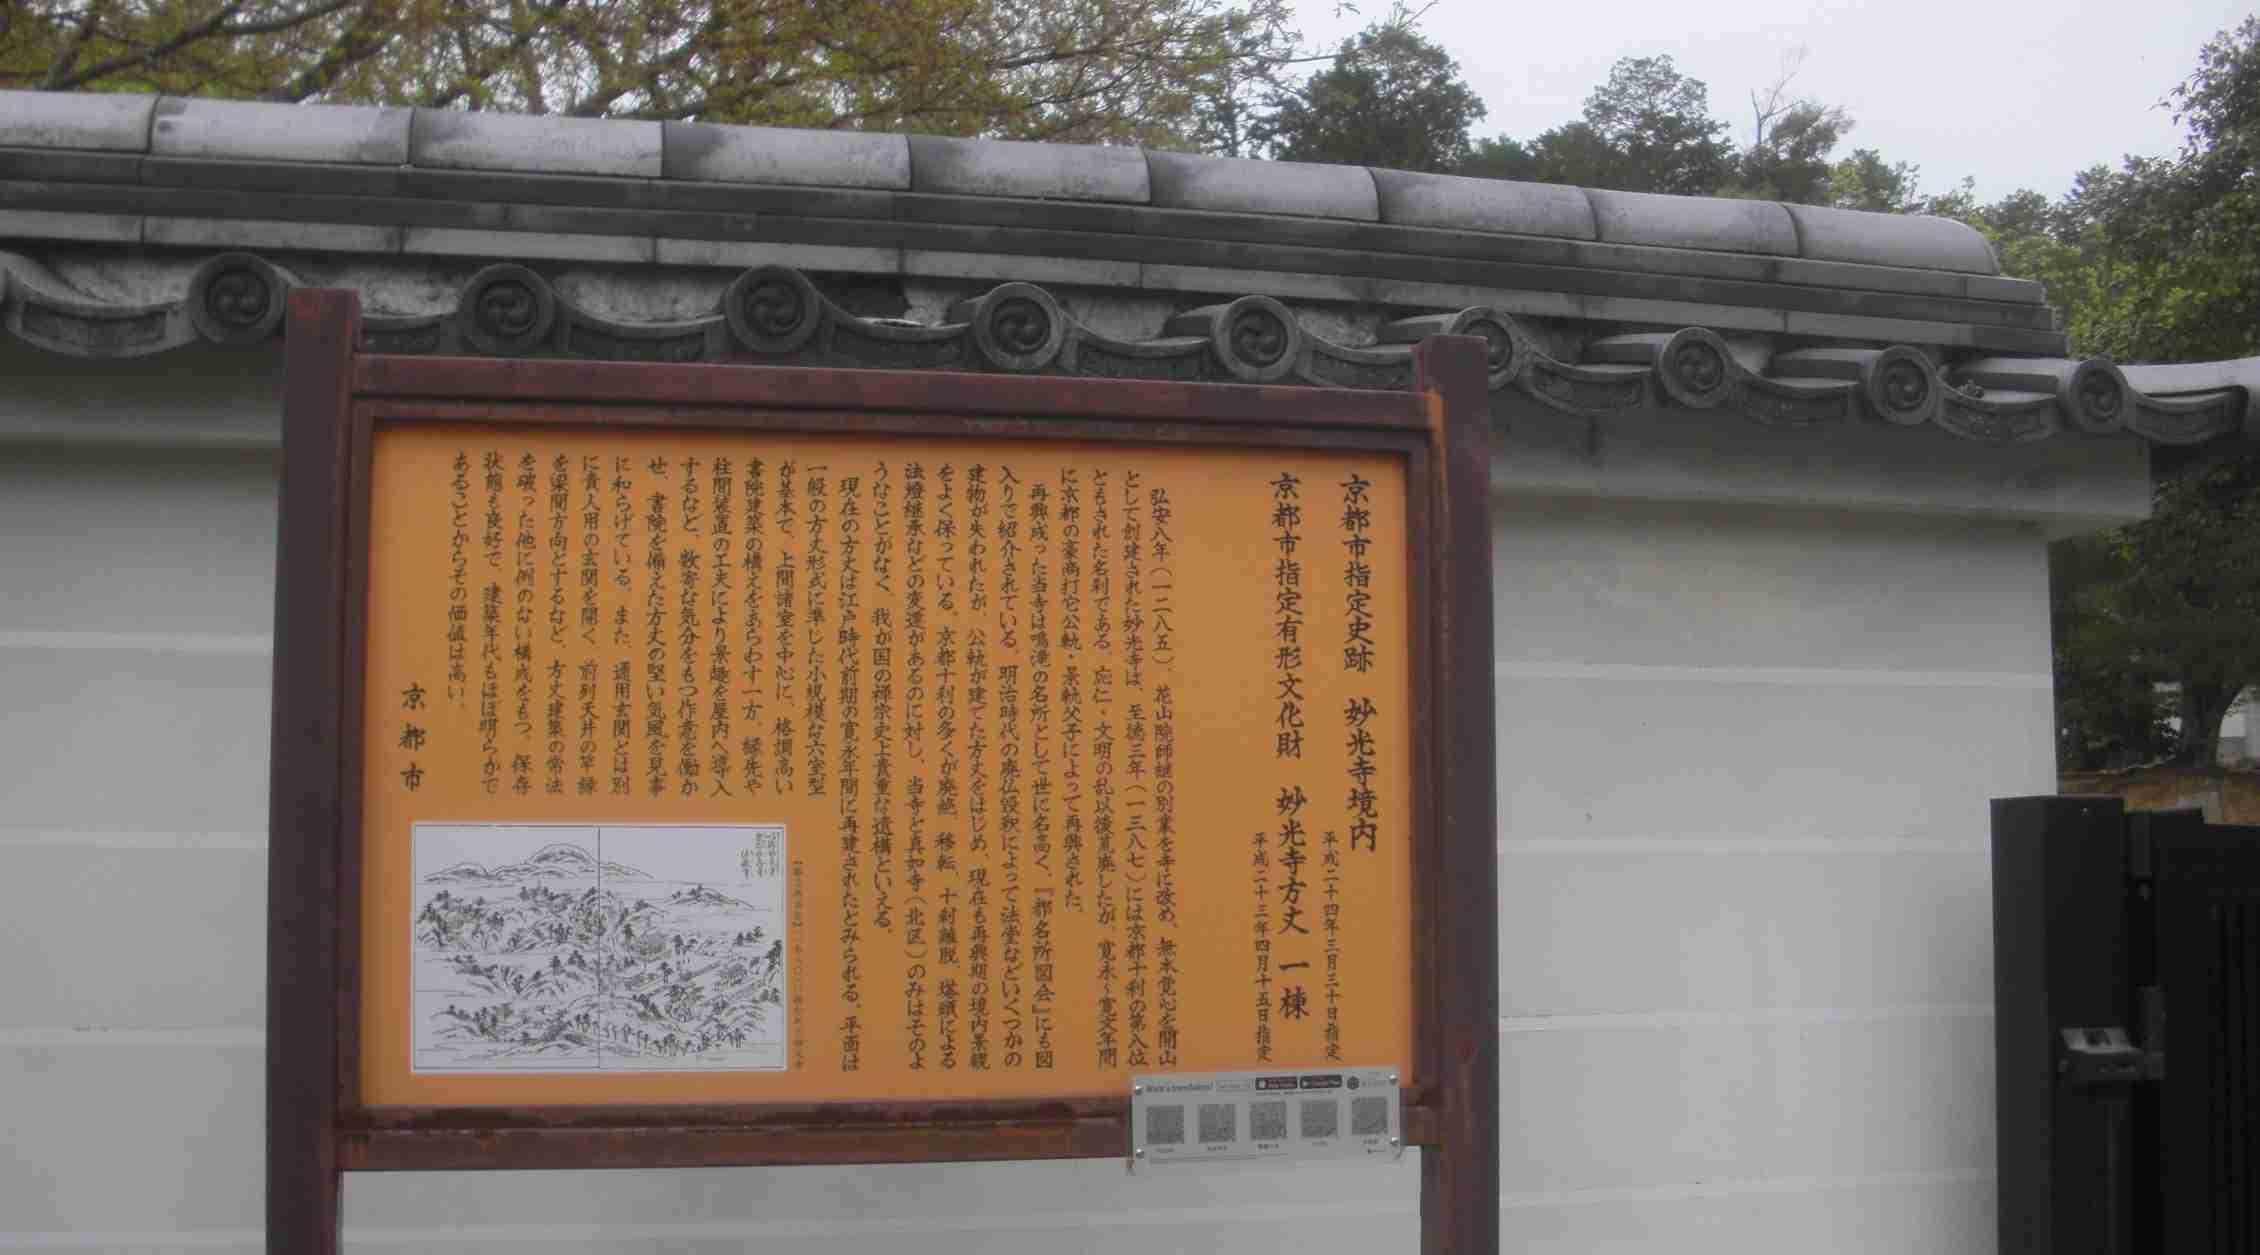 京都市指定史跡 妙光寺境内
平成二十四年三月三十日指定
京都市指定有形文化財 妙光寺方丈 一棟
平成二十三年四月十五日指定
弘安八年(一二八五)、花山院師継の別業を寺に改め、無本覚心を開山
として創建された妙光寺は、至徳三年(一三八七)には京都十刹の第八位
ともされた名刹である。応仁・文明の乱以後荒廃したが、寛永~寛文年間
に京都の豪商打它公軌・景軌父子によって再興された。
再興成った当寺は鳴滝の名所として世に名高く、『都名所図会』にも図
入りで紹介されている。明治時代の廃仏毀釈によって法堂などいくつかの
建物が失われたが、公軌が建てた方丈をはじめ、現在も再興期の境内景観
をよく保っている。京都十刹の多くが廃絶、移転、十刹離脱、塔頭による
法燈継承などの変遷があるのに対し、当寺と真如寺(北区)のみはそのよ
うなことがなく、我が国の禅宗史上貴重な遺構といえる。
現在の方丈は江戸時代前期の寛永年間に再建されたとみられる。平面は
一般の方丈形式に準じた小規模な六室型
が基本で、上間諸室を中心に、格調高い
書院建築の構えをあらわす一方、縁先や
柱間装置の工夫により景趣を屋内へ導入
するなど、数寄な気分をもつ作意を働か
せ、書院を備えた方丈の堅い気風を見事
に和らげている。また、通用玄関とは別
に貴人用の玄関を開く、前列天井の竿縁
を梁間方向とするなど、方丈建築の常法
を破った他に例のない構成をもつ。保存
状態も良好で、建築年代もほぼ明らかで
あることからその価値は高い。
京都市
Want a translation?